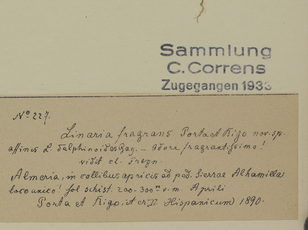 Sammlung
C. Correns
Zugegangen 1933
No 227.
Linaria fragrans Porta et Rigo nov. sp.
affines L. delphinoides Gay. – Odore fragrantissimo!
vidit cl. Freyn
Almeria, in collibus apricis ad ped. Sierra Alhamilla
loco unico! sol. schist. 200-300 m. Aprili
Porta et Rigo, it. IIum Hispanicum 1890.